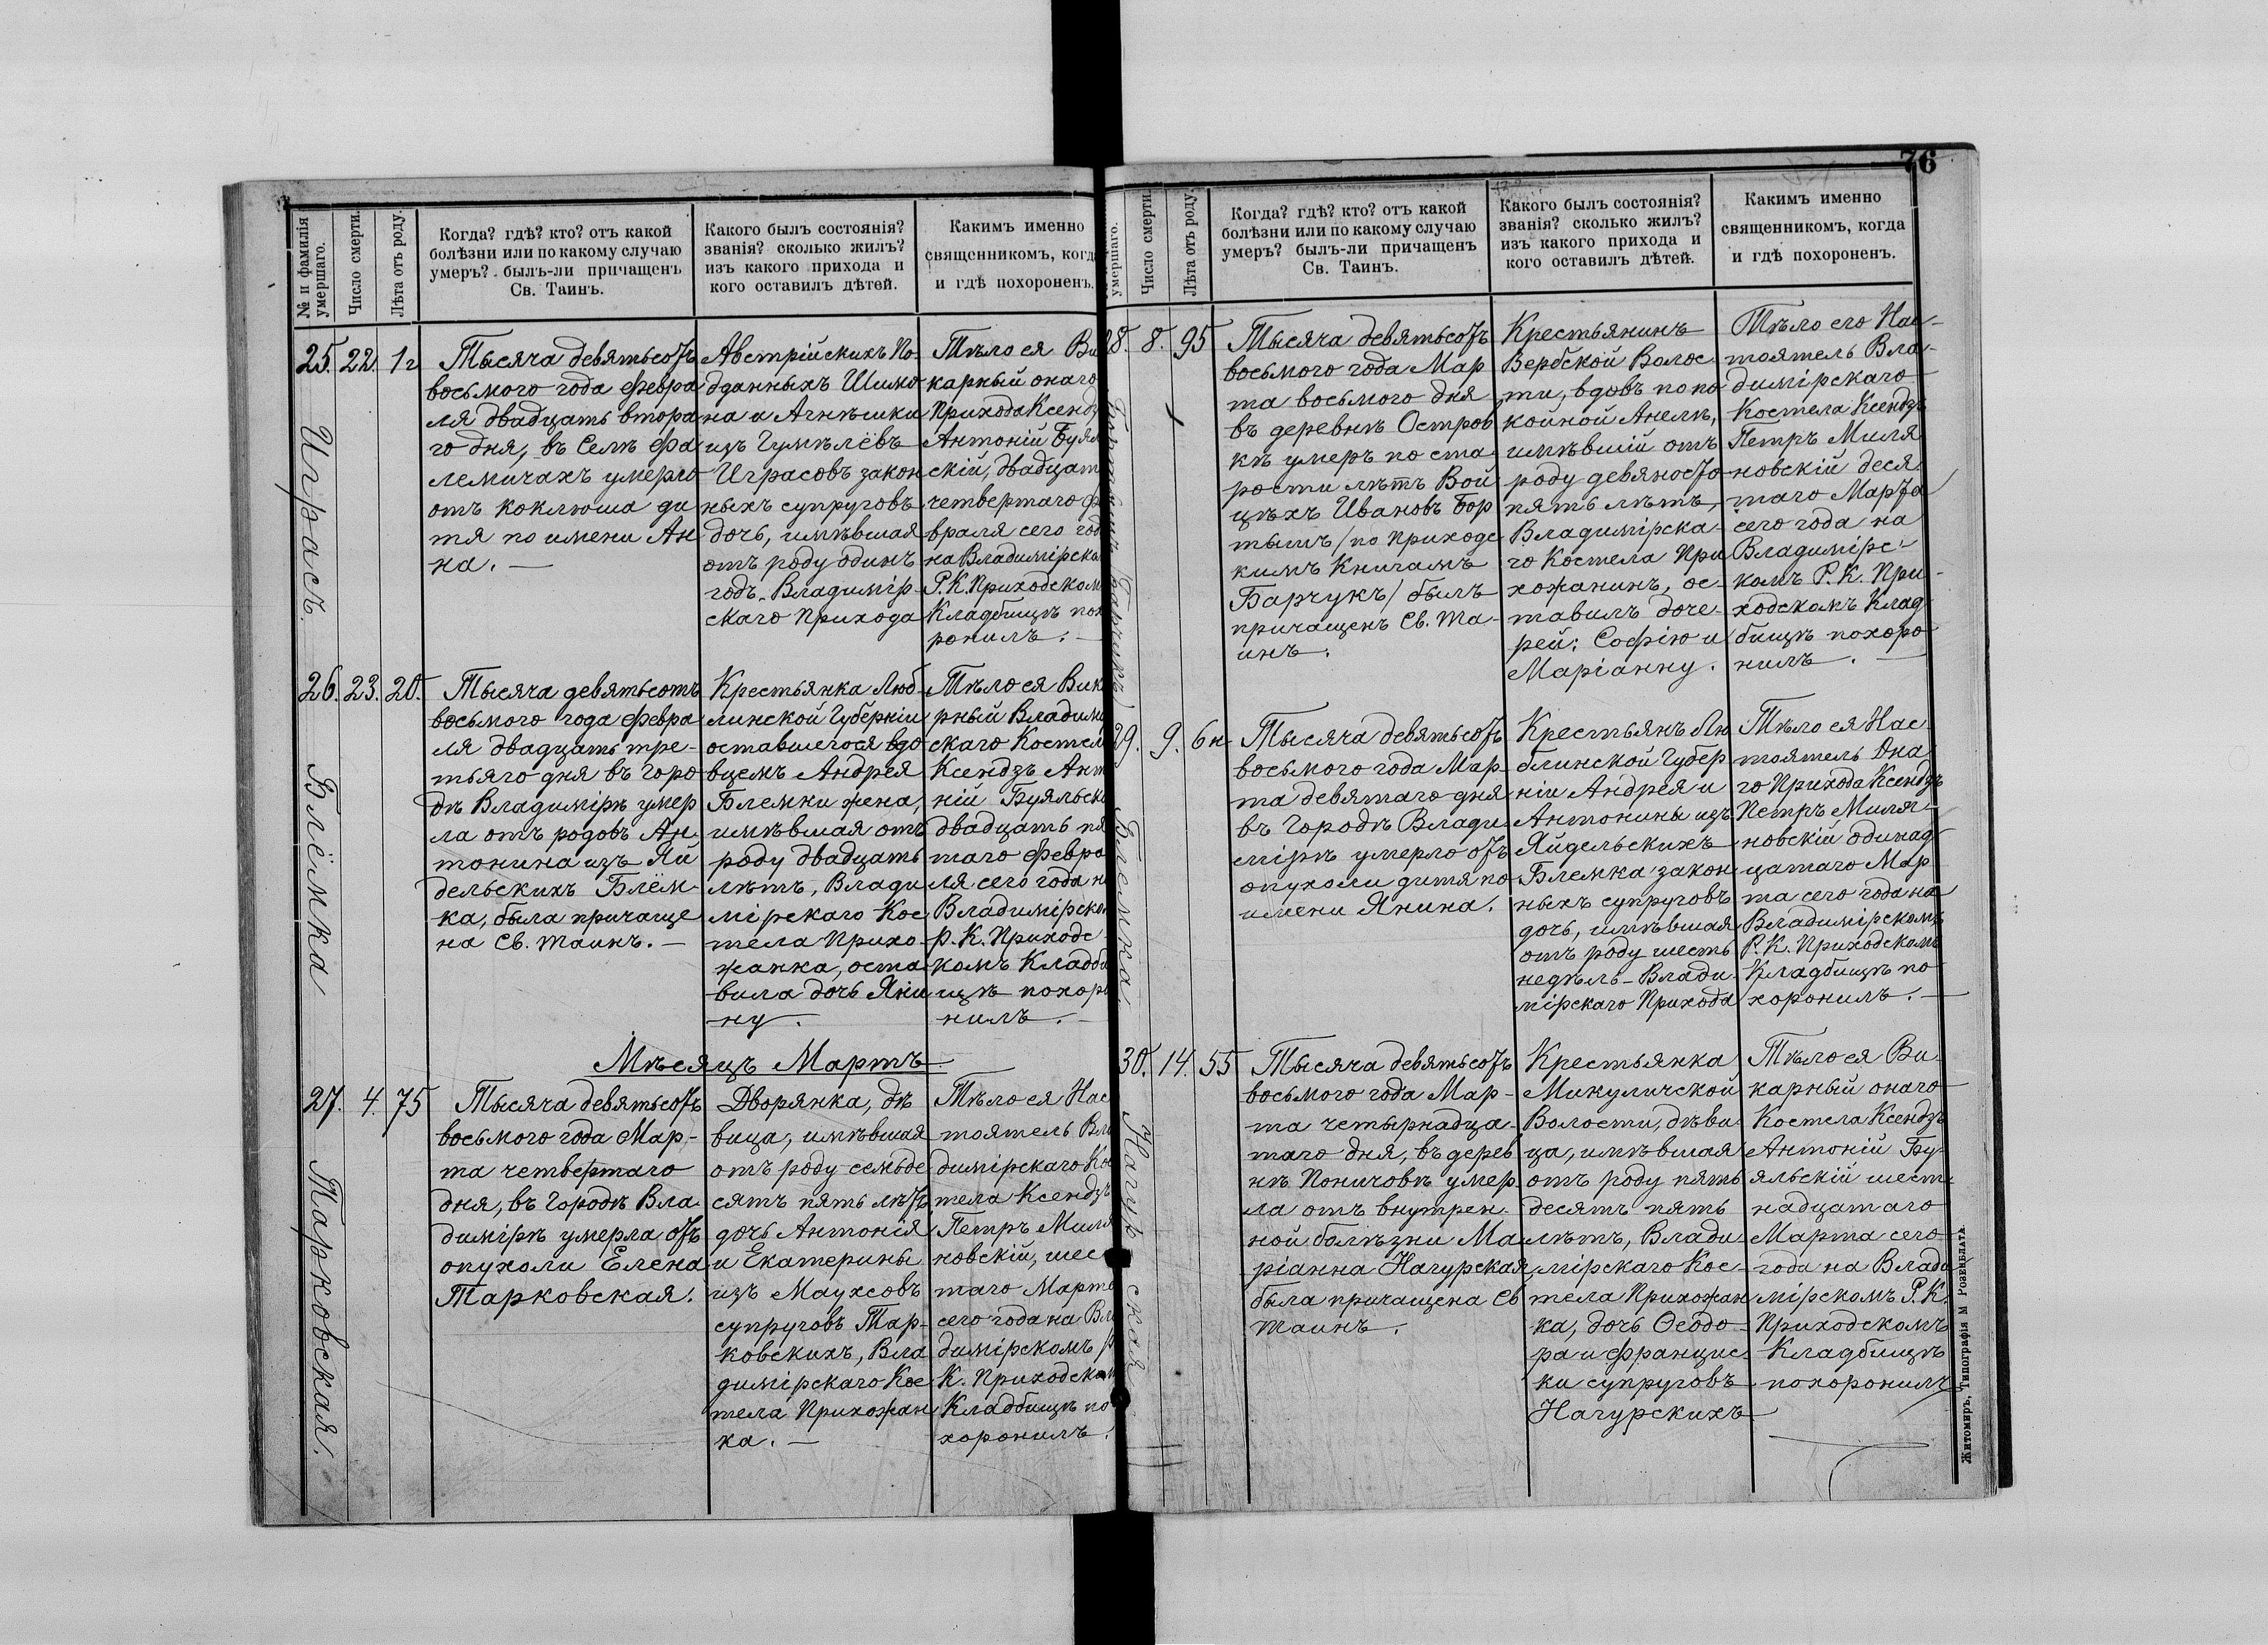 № и фамилія
умершаго.
Число смерти.
Лѣта отъ роду.
Когда? гдѣ? кто? отъ какой
болѣзни или по какому случаю
умеръ? былъ-ли причащенъ
Св. Таинъ.
Какого былъ состоянія?
званія? сколько жилъ?
изъ какого прихода и
кого оставилъ дѣтей.
Какимъ именно
священникомъ, когд
и гдѣ похороненъ.
25.
Играсъ.
22.
1 г
Тысяча девятьсотъ
восьмого года февра
ля двадцать втора
го дня, въ Селѣ Фа
лемичахъ умерло
отъ коклюша ди
тя по имени Ан
на. —
Австрійскихъ По-
дданныхъ Шимо
на и Агнѣшки
изъ Гумѣлёвъ
Играсовъ закон
ныхъ супруговъ
дочь, имѣвшая
отъ роду одинъ
годъ. Владимір-
скаго Прихода
Тѣло ея Ви
карный онаго
Прихода Ксендз
Антоній Буял
скій, двадцат
четвертаго ф
враля сего год
на Владимірско
Р.К. Приходском
Кладбищѣ пох
ронилъ. —
26.
Блёмка
23.
20.
Тысяча девятьсотъ
восьмого года февра
ля двадцать тре-
тьяго дня въ Горо
дѣ Владимірѣ умер
ла отъ родовъ Ан-
тонина изъ Яй
дельскихъ Блём-
ка, была причаще
на Св. Таинъ. —
Крестьянка Люб-
линской Губерніи
оставшегося вдо
вцемъ Андрея
Блемки жена,
имѣвшая отъ
роду двадцать
лѣтъ, Влади
мірскаго Кос
тела Прихо-
жанка, оста
вила дочь Яни
ну.
Тѣло ея Вик
рный Владими
скаго Костел
Ксендзъ Ант
ній Буяльск
двадцать пя
таго февра
ля сего года н
Владимірско
Р. К. Приходс
комъ Кладби
щѣ похоро
нилъ. —
Мѣсяцъ Мартъ
27.
Тарковская.
4.
75
Тысяча девятьсотъ
восьмого года Мар-
та четвертаго
дня, въ Городѣ Вла-
димірѣ умерла отъ
опухоли Елена
Тарковская.
Дворянка, дѣ
вица, имѣвшая
отъ роду семьде
сятъ пять лѣтъ,
дочь Антонія
и Екатерины
изъ Маухсовъ
супруговъ Тар-
ковскихъ, Вла
димірскаго Кос
тела Прихожан
ка. —
Тѣло ея Нас
тоятель Вла
димірскаго Кос
тела Ксендзъ
Петръ Миля
новскій, шес
таго Марта
сего года на Вла
димірскомъ Р
К. Приходском
Кладбищѣ по
хоронилъ.
76
умершаго.
Число смерти.
Лѣта отъ роду.
Когда? гдѣ? кто? отъ какой
болѣзни или по какому случаю
умеръ? былъ-ли причащенъ
Св. Таинъ.
Какого былъ состоянія?
званія? сколько жилъ?
изъ какого прихода и
кого оставилъ дѣтей.
Какимъ именно
священникомъ, когда
и гдѣ похороненъ.
28.
8.
95
Тысяча девятьсотъ
восьмого года Мар
та восьмого дня
въ деревнѣ Остров
кѣ умеръ по ста
рости лѣтъ Вой
цѣхъ Ивановъ Бор
тымъ /по Приходс
кимъ Книгамъ
Барчукъ/ былъ
причащенъ Св. Та-
инъ.
Крестьянинъ
Вербской Волос-
ти, вдовъ по по
койной Анелѣ,
имѣвшій отъ
роду девяносто
пять лѣтъ,
Владимірска-
го Костела При
хожанинъ, ос-
тавилъ доче-
рей: Софію и
Маріанну.
Тѣло его Нас-
тоятель Вла-
димірскаго
Костела Ксендзъ
Петръ Миля
новскій деся
таго Марта
сего года на
Владимірс-
комъ Р. К. При-
ходскомъ Клад
бищѣ похоро
нилъ. —
29.
Блемка.
9.
6 н.
Тысяча девятьсотъ
восьмого года Мар-
та девятаго дня
въ Городѣ Влади-
мірѣ умерло отъ
опухоли дитя по
имени Янина.
Крестьянъ Лю
блинской Губер
ніи Андрея и
Антонины изъ
Яйдельскихъ
Блемка закон
ныхъ супруговъ
дочь, имѣвшая
отъ роду шесть
недѣль - Влади-
мірскаго Прихода
Тѣло ея Нас
тоятель Она
го Прихода Ксендзъ
Петръ Миля-
новскій одинад
цатаго Мар
та сего года на
Владимірскомъ
Р. К. Приходскомъ
Кладбищѣ по
хоронилъ. —
30.
Нагурская
14.
55
Тысяча девятьсотъ
восьмого года Мар-
та четырнадца-
таго дня, въ дерев
нѣ Поничовѣ умер-
ла отъ внутрен-
ной болѣзни Ма
ріанна Нагурская,
была причащена Св
Таинъ.
Крестьянка
Микуличской
Волости, дѣви
ца, имѣвшая
отъ роду пять
десятъ пять
лѣтъ, Влади
мірскаго Кос-
тела Прихожан
ка, дочь Ѳеодо-
ра и Францис
ки супруговъ
Нагурскихъ
Тѣло ея Ви-
карный онаго
Костела Ксендзъ
Антоній Бу-
яльскій шест-
надцатаго
Марта сего
года на Влади
мірскомъ Р. К.
Приходскомъ
Кладбищѣ
похоронилъ
Житомиръ, Типографія М Розенблата